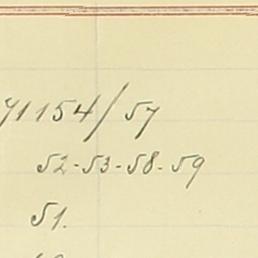 71154/57
52-53-58-59
51.